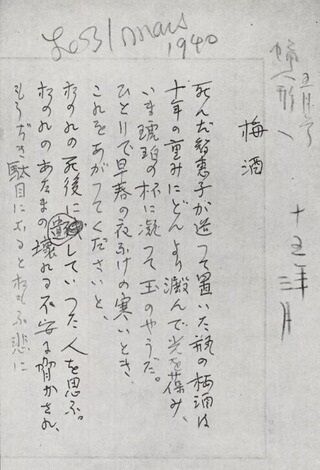 Le 31 mars
1940
梅酒
死んだ智恵子が造つて置いた瓶の梅酒は
十年の重みにどんより澱んで光を葆み、
いま琥珀の杯に凝つて玉のやうだ。
ひとりで早春の夜ふけの寒いとき、
これをあがつてくださいと、
おのれの死後に遺していつた人を思ふ。
おのれのあたまの壊れる不安に脅かされ、
もうぢき駄目になるとおもふ悲に